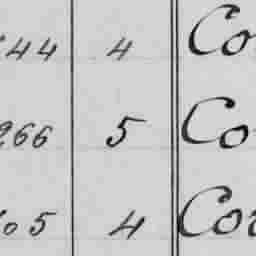 44 4 Co
266 5 Co
05 4 Co